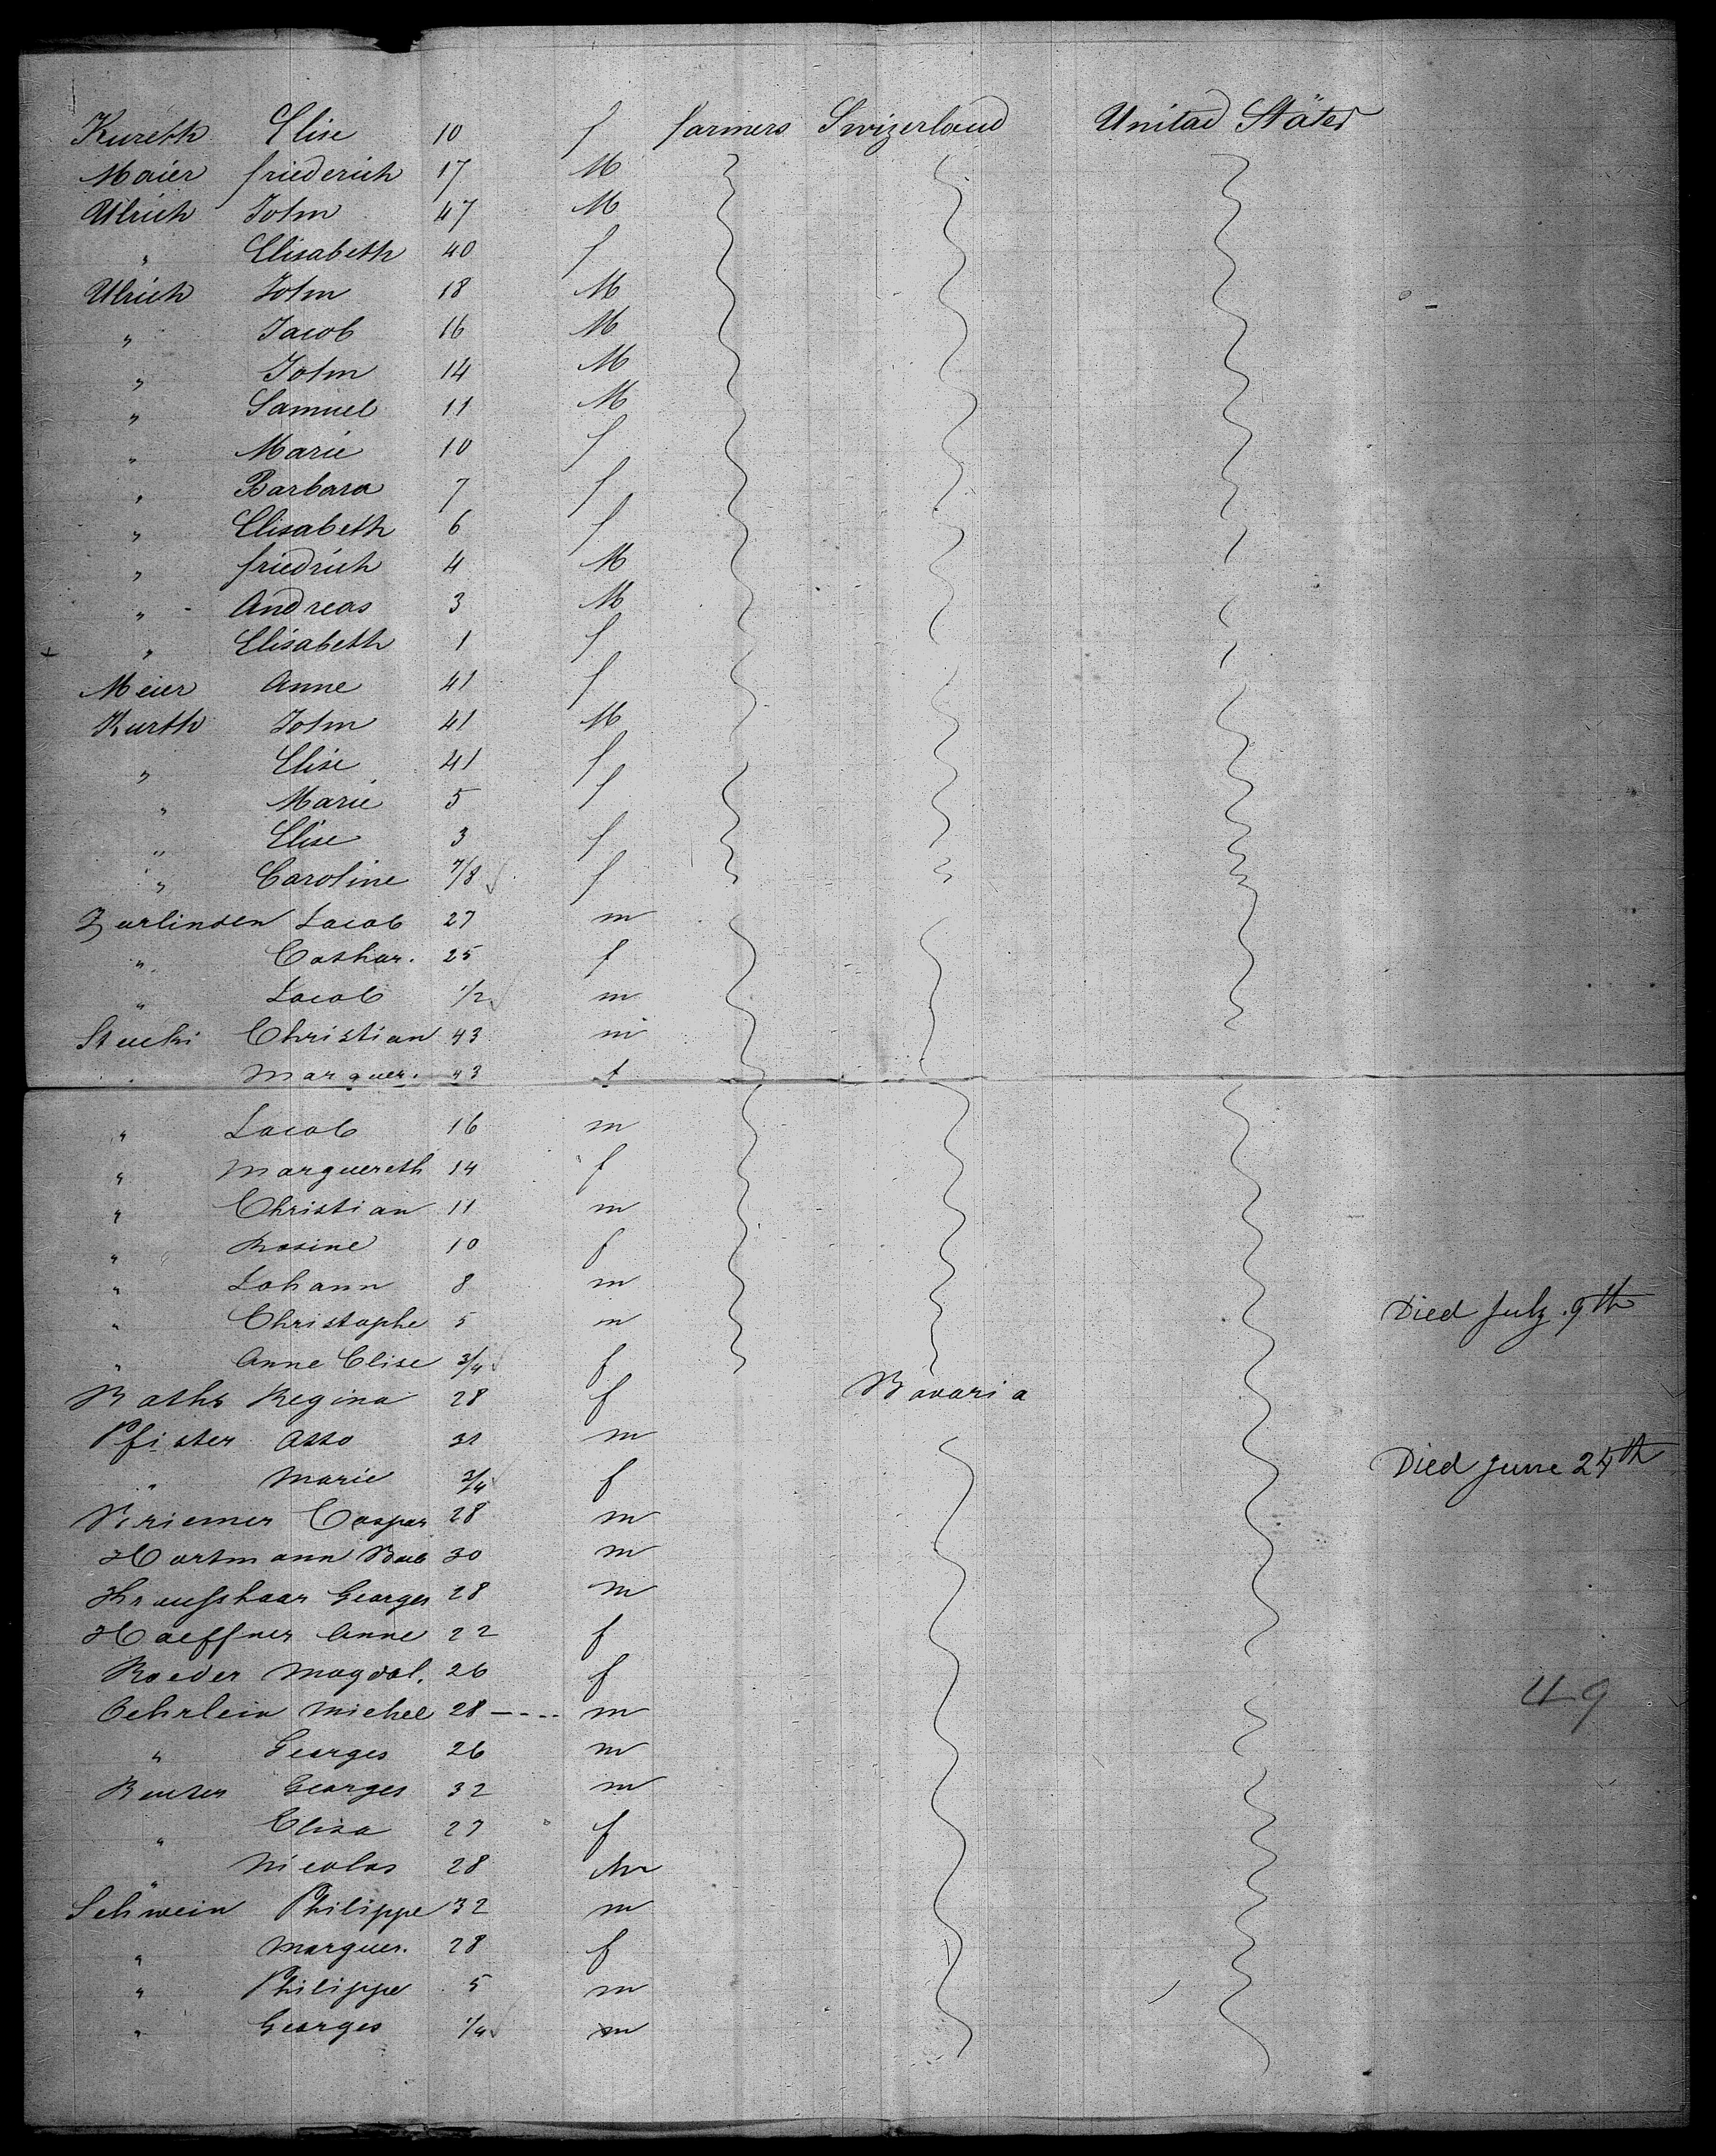 Kureth Elise 10 f farmers Swizerland Unitad Stätes
Maier friederich 17 M
Ulrich John 47 M
" Elisabeth 40 f
Ulrich John 18 M
" Jacob 16 M
" John 14 M
" Samuel 11 M
" Marie 10 f
" Barbara 7 f
" Elisabeth 6 f
" friedrich 4 M
" Andreas 3 M
" Elisabeth 1 f
Meier Anne 41 f
Kurth John 41 M
" Elise 41 f
" Marie 5 f
" Elise 3 f
" Caroline 7/8 f
Zurlinden Jacob 27 m
" Cathar. 25 f
" Jacob 1/2 m
Stucki Christian 43 m
" Marguer. 43 f
" Jacob 16 m
" Marguereth 14 f
" Christian 11 m
" Rosine 10 f
" Johann 8 m
" Christophe 5 m Died July 9th
" Anne Elise 3/4 f
Baths Regina 28 f Bavaria
Pfister Otto 31 m
" Marie 3/4 f Died June 25th
Kriemer Caspar 28 m
Hartmann 30 m
Kraufshaar Georges 28 m
Haeffner Anne 22 f
Roeder Magdal. 26 f
Oehrlein Michel 28 – - - - m 49
" Georges 26 m
Georges 32 m
" Elisa 27 f
" Nicolas 28 m
Schwein Philippe 32 m
" Marguer. 28 f
" Philippe 5 m
" Georges 1/4 m